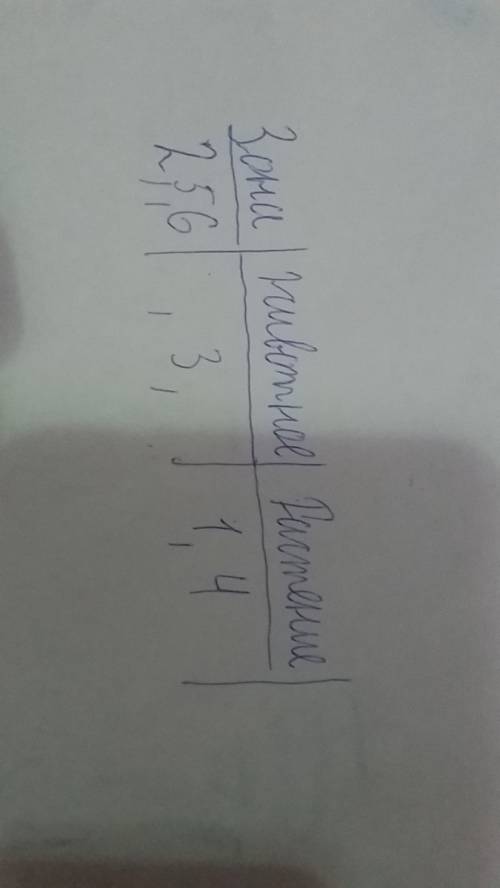 Зона Животное Растение
2, 5, 6 , 3, 1, 4